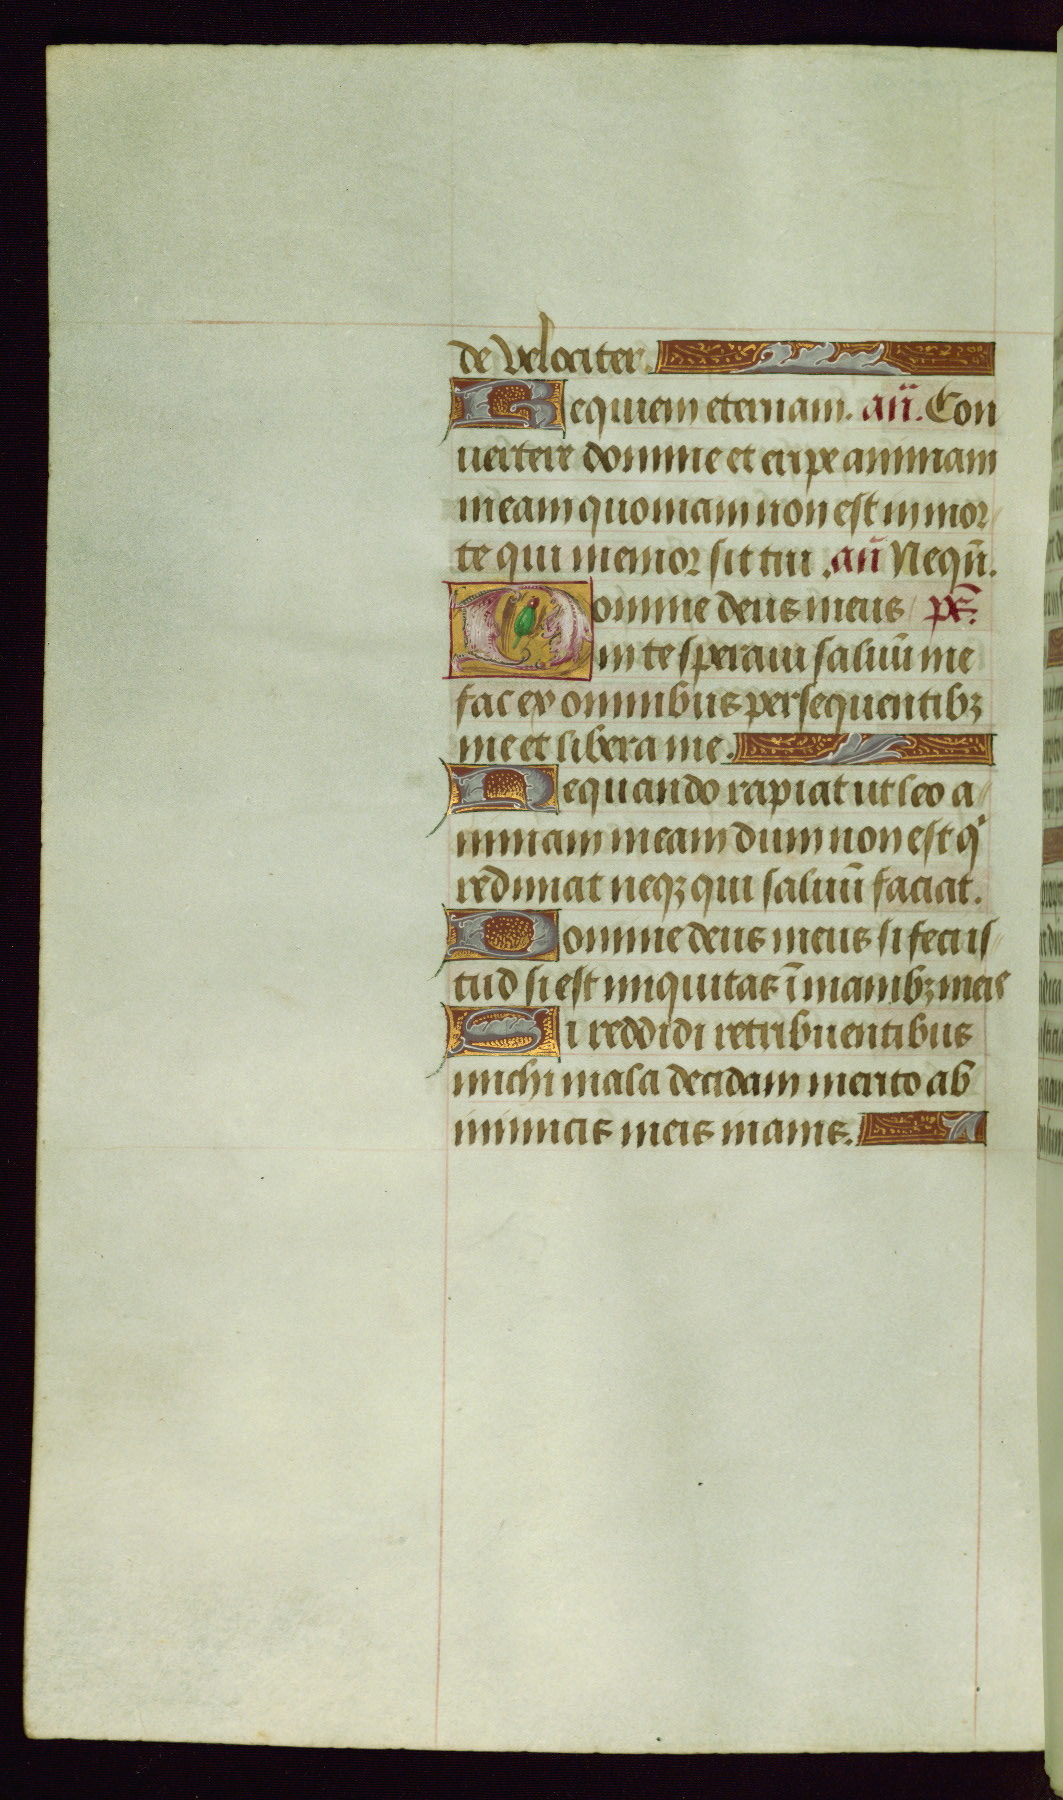 de velociter.
Requiem eternam. an̄. Con
uertere domine et eripe animam
meam quoniam non est in mor
te qui memor sit tui. an̄ Nequn̄.
Domine deus meus ps̄.
in te speraui saluū me
fac ex omnibus persequentibꝫ
me et libera me.
Nequando rapiat ut leo a
nimam meam dum non est qⁱ
redimat neqꝫ qui saluū faciat.
Domine deus meus si feci is
tud si est iniquitas ī manibꝫ meis
Si reddidi retribuentibus
michi mala decidam merito ab
inimicis meis inanis.